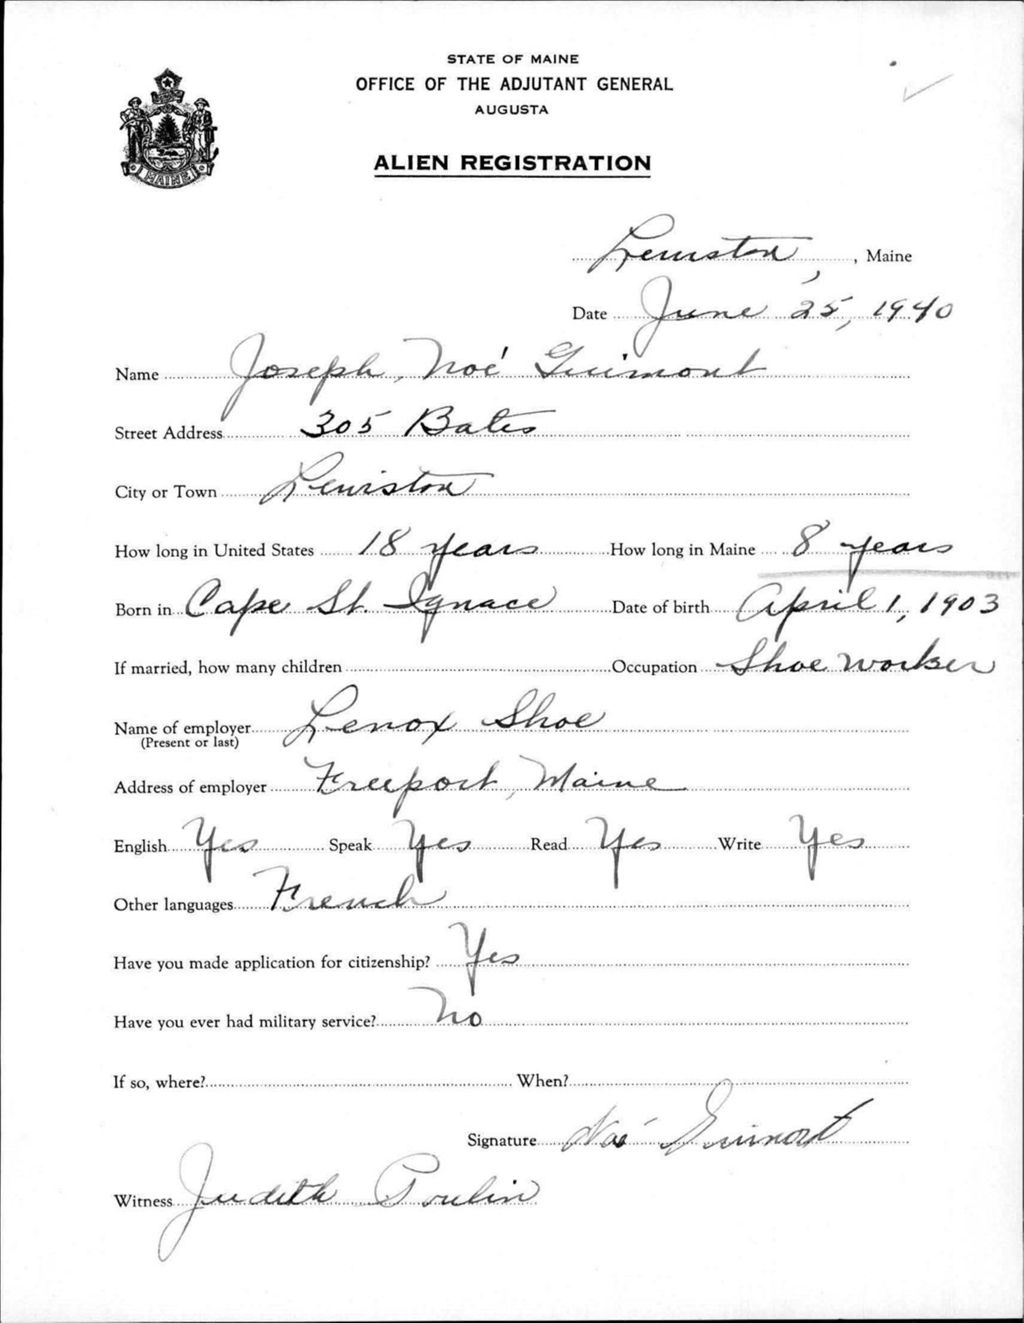 STATE OF MAINE
OFFICE OF THE ADJUTANT GENERAL
AUGUSTA
ALIEN REGISTRATION
MAINE
Lewiston, Maine
Date June 25, 1940
Name Joseph, Noé Guimont
Street Address 305 Bates
City or Town Lewiston
How long in United States 18 years How long in Maine 8 years
Born in Cape St. Ignace Date of birth April 1, 1903
If married, how many children Occupation Shoe worker
Name of employer Lenox Shoe
(Present or last)
Address of employer Freeport, Maine
English Yes Speak Yes Read Yes Write Yes
Other languages French
Have you made application for citizenship? Yes
Have you ever had military service? No
If so, where? When?
Signature Noé Guimont
Witness Judith Poulin